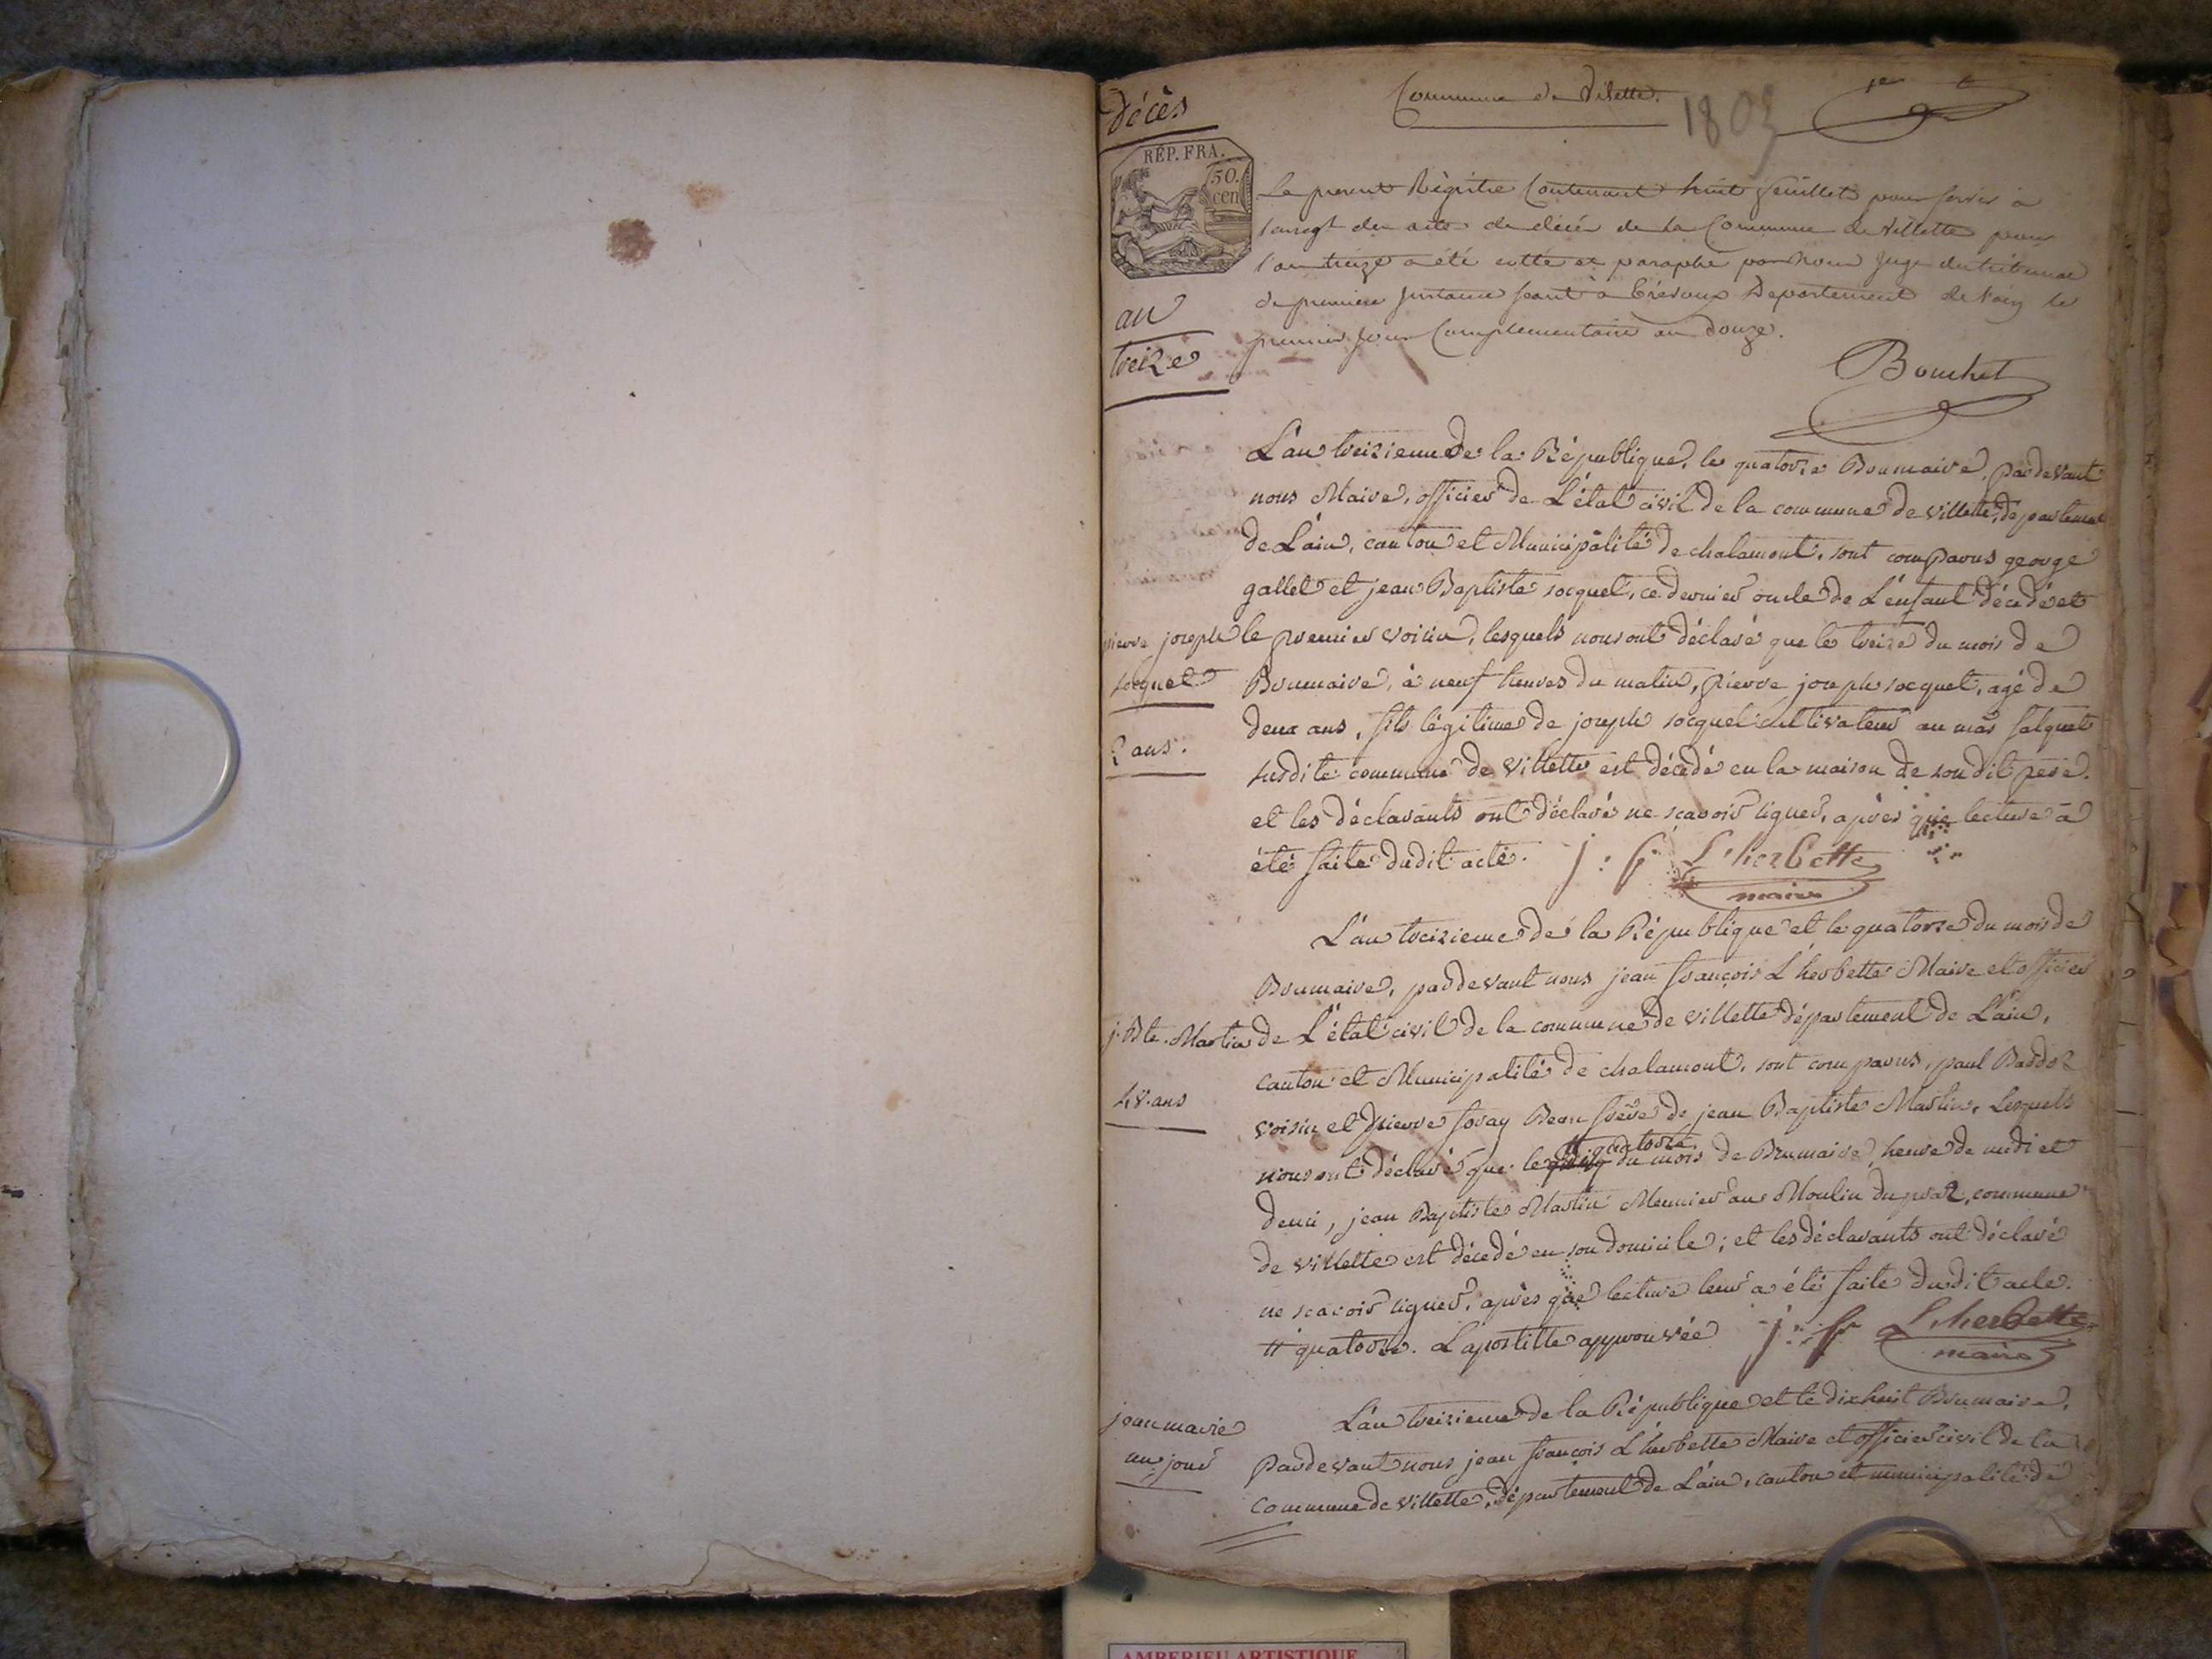 décès
Commune de Villette.
1803
1er
RÉP. FRA.
50.
cen
an
treize
Le present Régistre Contenant huit feuillets pour servir à
l'enregt des actes de décés de la Commune de Villette pour
l'an treize a été cotté et paraphé par nous Juge du tribunal
de premiere Instance séant à Trévoux Departement de l'ain le
premier jour Complementaire an douze.
Bouchet
L'an treizieme de la République, le quatorze Brumaire, pardevant
nous Maire, officier de L'état civil de la commune de villette, département
de L'ain, canton et Municipalité de chalamont, sont comparus george
gallet et jean Baptiste socquet, ce dernier oncle de L'enfant décédé et
pierre joseph
socquet
2 ans.
le premier voisin, lesquels nous ont déclaré que le treize du mois de
Brumaire, à neuf heures du matin, pierre joseph socquet, agé de
deux ans, fils légitime de joseph socquet cultivateur au mas falquet
susdite commune de villette est décédé en la maison de son dit pere.
et les déclarants ont déclaré ne scavoir signer, après que lecture a
été faite dudit acte. j: f L'herbette
maire
L'an treizieme de la République et le quatorze du mois de
Brumaire, pardevant nous jean françois L'herbette Maire et officier
j. Bte. Martin
48. ans
de L'état civil de la commune de villette département de L'ain,
canton et Municipalité de chalamont, sont comparus, paul Bardoz
voisin et pierre foray Beau frère de jean Baptiste Martin, Lesquels
" quatorze
nous ont déclaré que le du mois de Brumaire, heure de midi et
demi, jean Baptiste Martin Meunier au Moulin du praz, commune
de villette est décédé en son domicile; et les déclarants ont déclaré
ne scavoir signer, après que lecture leur a été faite dudit acte.
" quatorze. L'apostille approuvée j: f L'herbette
maire
jean marie
un jour
L'an treizieme de la République et le dix huit Brumaire,
Pardevant nous jean françois L'herbette Maire et officier civil de la
commune de villette, département de L'ain, canton et municipalité de
AMBERIEU ARTISTIQUE